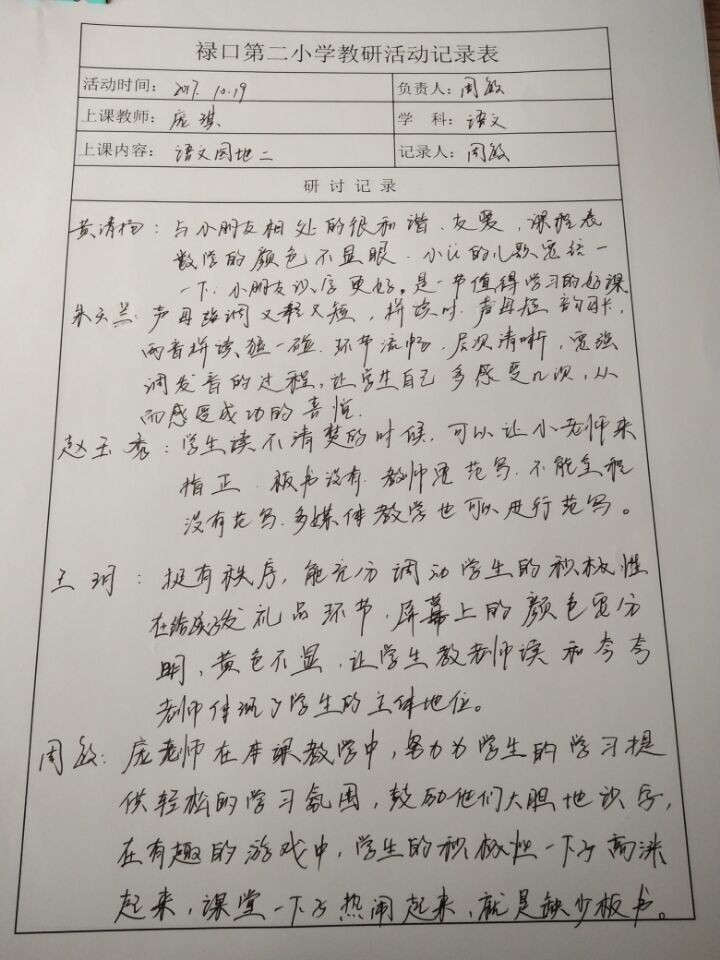 禄口第二小学教研活动记录表
活动时间： 2017. 10.19 负责人：周敏
上课教师：庞琪 学 科：语文
上课内容： 语文园地二 记录人：周敏
研 讨 记 录
黄清梅：与小朋友相处的很和谐、友爱，课程表
数学的颜色不显眼. 小江的儿歌总结一
一下. 小朋友识字更好。是一节值得学习的好课
朱云兰：声母强调又轻又短，拼读时.声母短韵母长，
两音拼读猛一碰.环节流畅.层次清晰，要强
调发音的过程，让学生自己多感受几次，从
而感受成功的喜悦.
赵玉秀：学生读不清楚的时候，可以让小老师来
指正.板书没有.教师要范写.不能全程
没有范写.多媒体教学也可以进行范写。
王玥：挺有秩序，能充分调动学生的积极性
在给发礼品环节，屏幕上的颜色要分
明，黄色不显.让学生教老师读和夸夸
老师体现了学生的主体地位。
周敏：庞老师在本课教学中，努力为学生的学习提
供轻松的学习氛围，鼓励他们大胆地识字，
在有趣的游戏中，学生的积极性一下子高涨
起来，课堂一下子热闹起来，就是缺少板书。